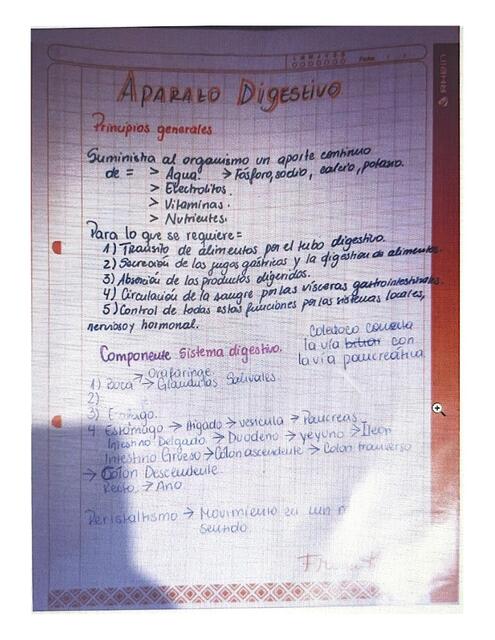 APARATO DIGESTIVO
Principios generales
Suministra al organismo un aporte continuo
de = > Agua. → Fósforo, sodio, calcio, potasio.
> Electrolitos.
> Vitaminas.
> Nutrientes.
Para lo que se requiere=
1) Transito de alimentos por el tubo digestivo.
2) Secreción de los jugos gástricos y la digestión de alimentos.
3) Absorción de los productos digeridos.
4) Circulación de la sangre por las vísceras gastrointestinales.
5) Control de todas estas funciones por los sistemas locales,
nervioso y hormonal.
Coledoco conecta
la vía biliar con
la vía pancreática
Componente Sistema digestivo.
→ Orofaringe
1) Boca → Glandulas Salivales
2)
3) Esofago.
4 Estomago → Higado → vesicula → Pancreas
Intestino Delgado → Duodeno → yeyuno → Ileon
Intestino Grueso → Colon ascendente → Colon transverso
→ Colon Descendente
Recto → Ano
Peristaltismo → Movimiento
segundo